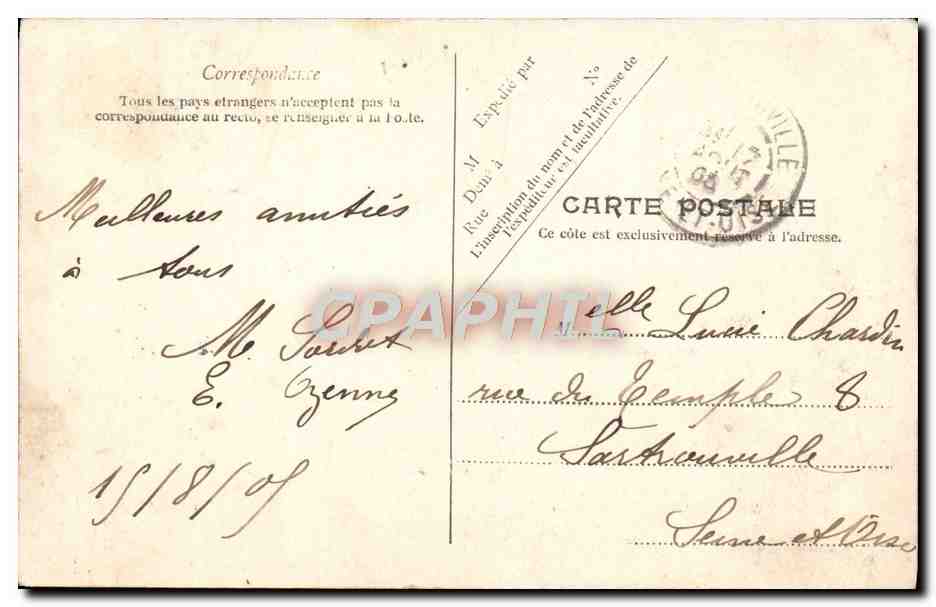 Correspondance
Tous les pays etrangers n'acceptent pas la
correspondance au recto, se renseigner à la Poste.
Meilleures amitiés
à tous
M.
E. Ozenne
15/8/05
Expédié par
M
Demt à
Rue
No
L'inscription du nom et de l'adresse de
l'expéditeur est facultative.
CARTE POSTALE
Ce côte est exclusivement réservé à l'adresse.
Melle Lucie Chardin
rue du Temple 8
Sartrouville
Seine et Oise
VILLE
ET-OISE
CPAPHIL